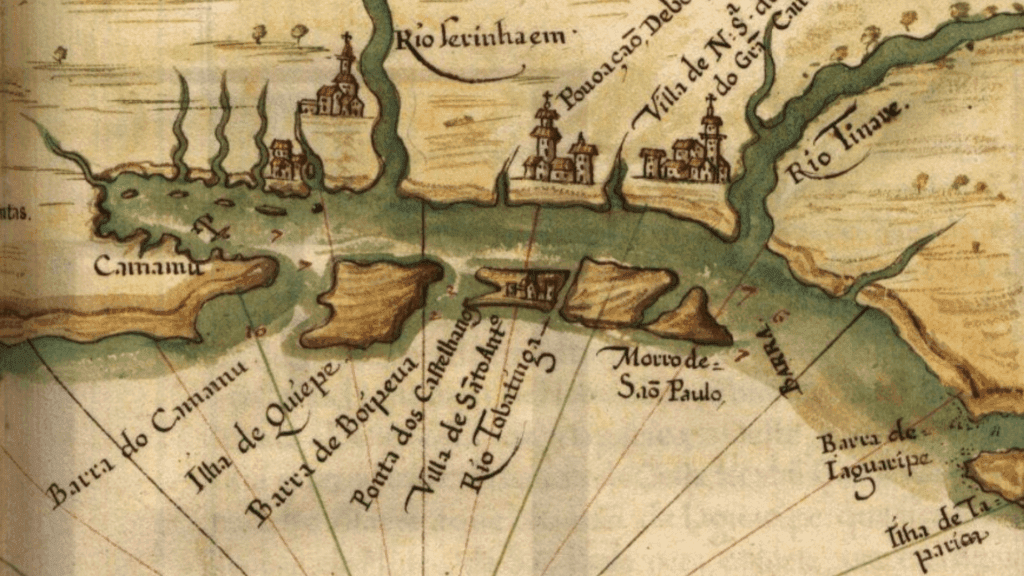 Rio Serinhaem
Pouoacaõ, Debo
Villa de N: Sª. du
do Gra Cam
Rio Tinare.
ntas.
Camamu
Barra do Camamu
Ilha de Quiepe
Barra de Boipeua
Ponta dos Castelhanos
Villa de Sãto Antº
Rio Tobatinga
Morro de=
Saõ Paulo
BARRA.
Barra de=
Iaguaripe
Ilha de Ta=
parica